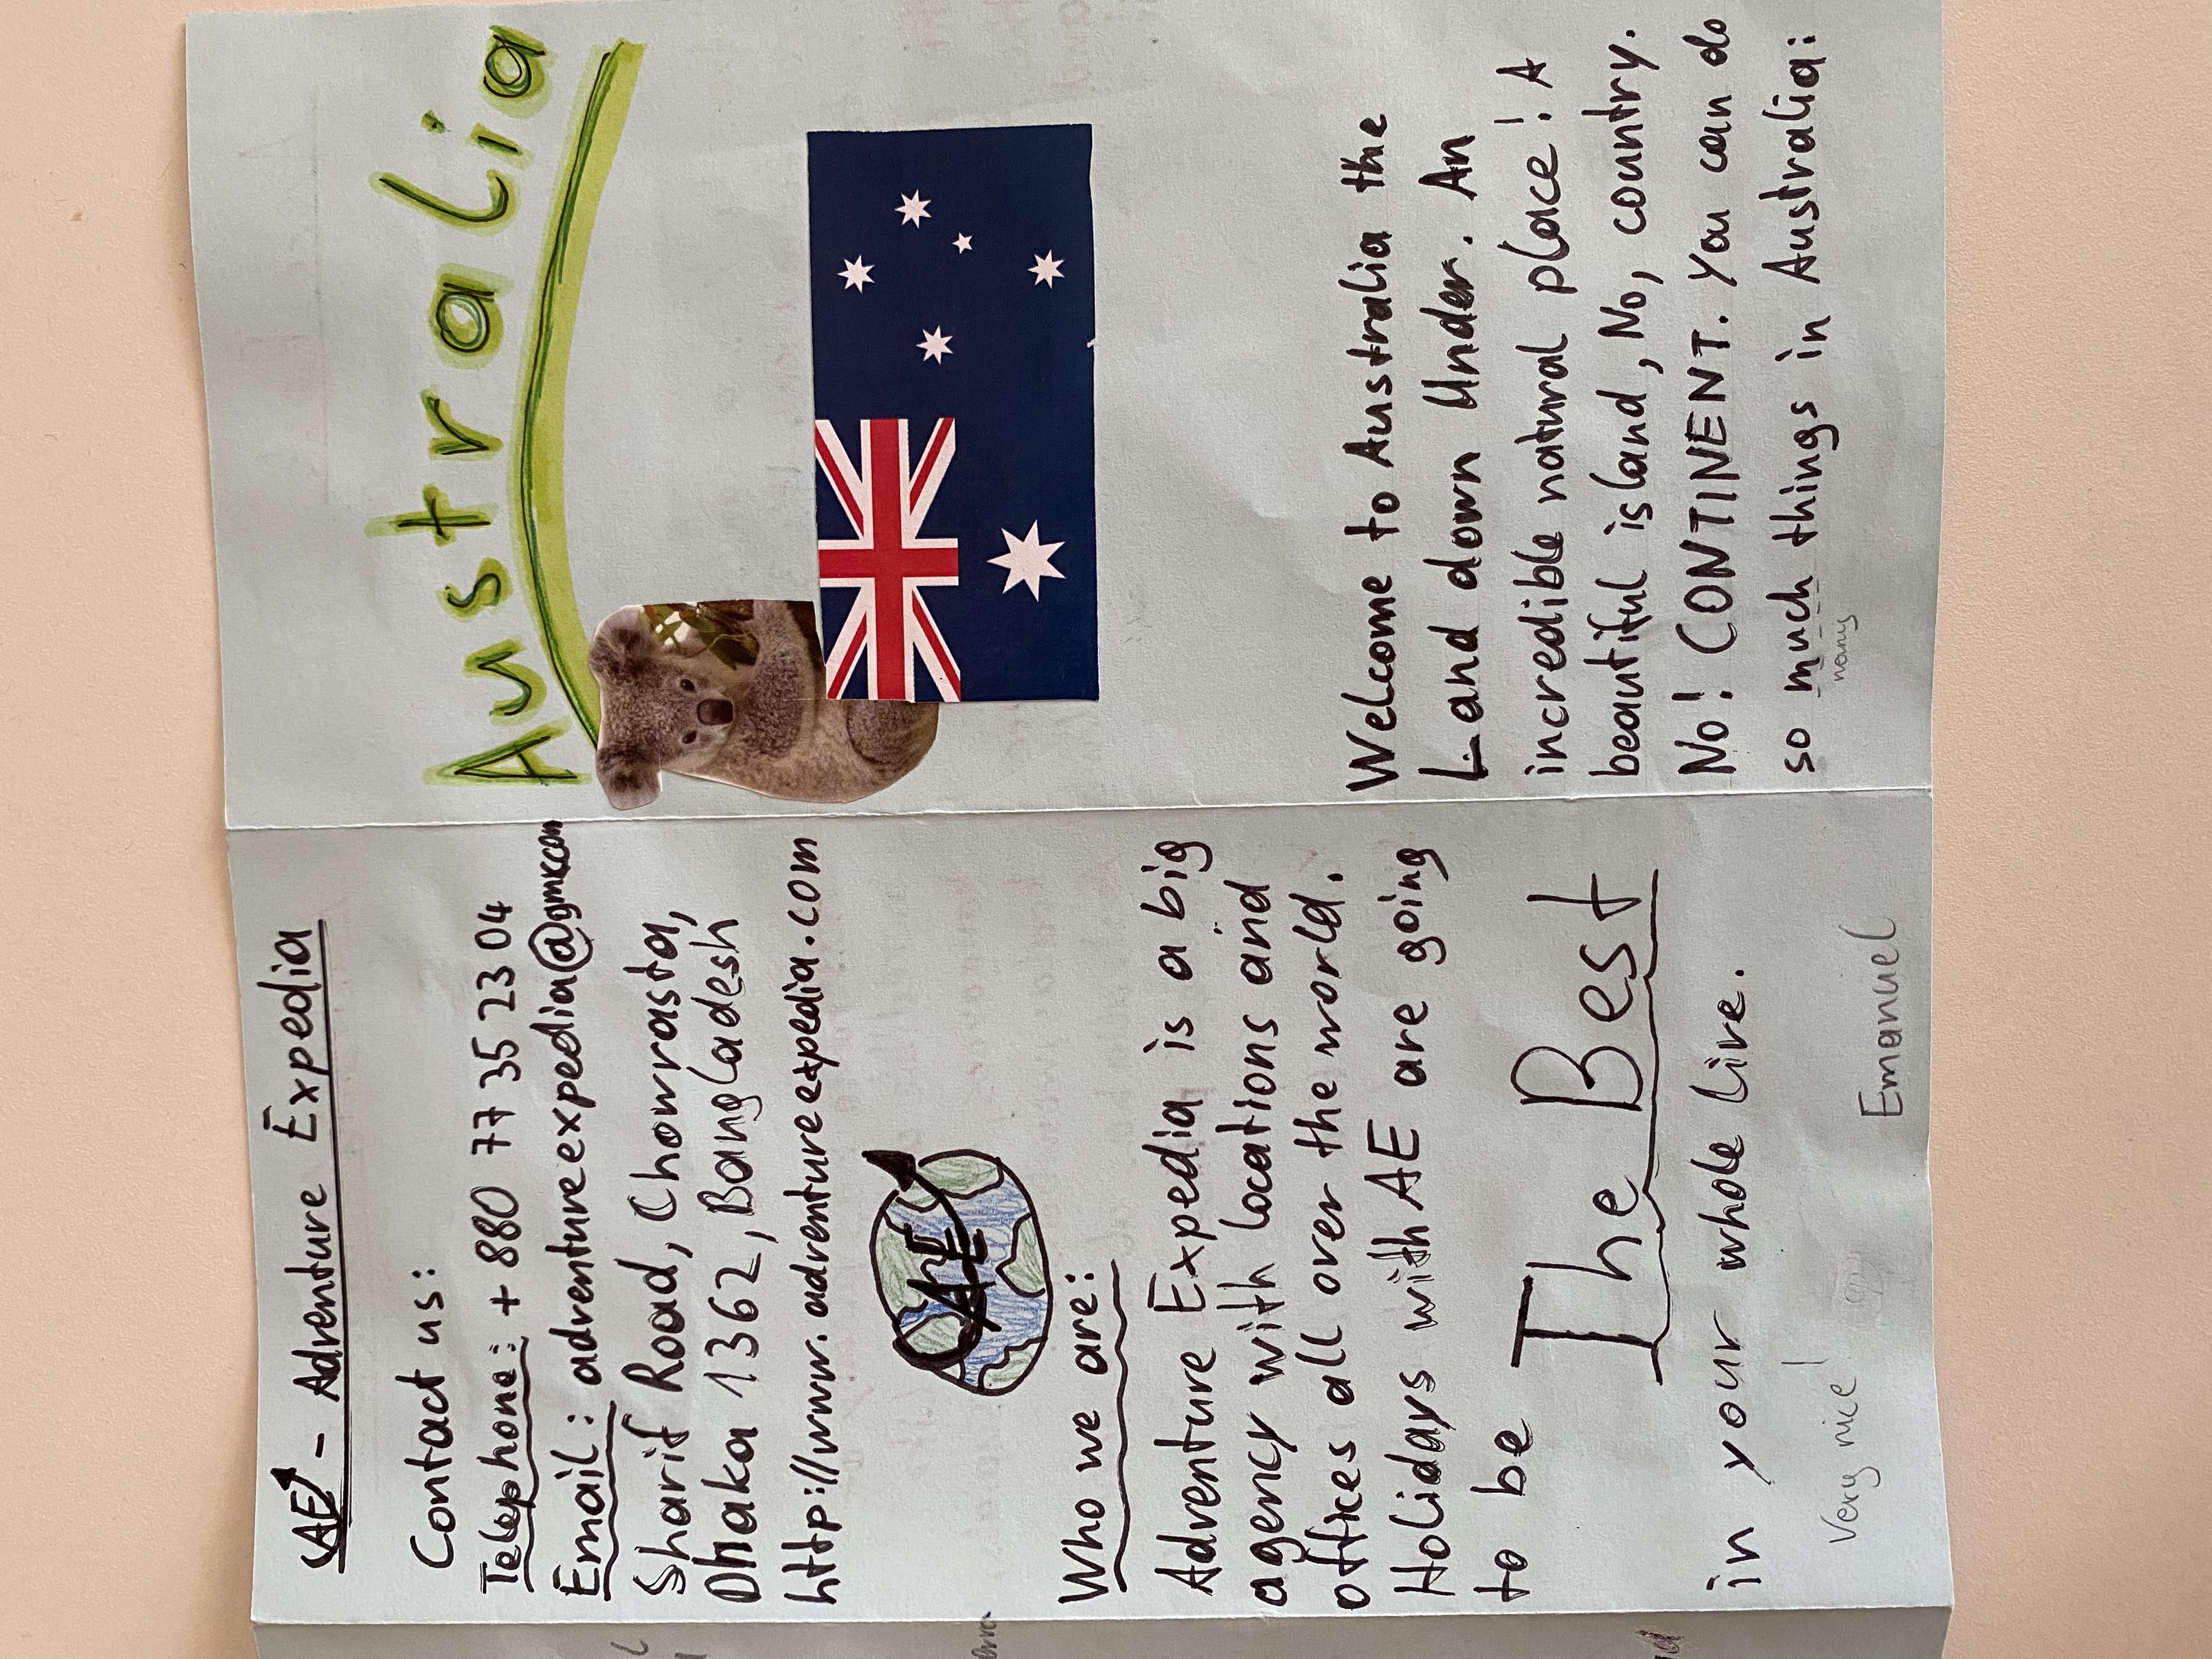 AE - Adventure Expedia
Contact us:
Telephone: +880 77 35 23 04
Email: adventureexpedia@gmx.com
Sharif Road, Chowrasta,
Dhaka 1362, Bangladesh
http://www.adventureexpedia.com
AE
Who we are:
Adventure Expedia is a big
agency with locations and
offices all over the world.
Holidays with AE are going
to be The Best
in your whole live.
Very nice!
Emanuel
Australia
Welcome to Australia the
Land down Under. An
incredible natural place! A
beautiful island, No, country.
No! CONTINENT. You can do
so much things in Australia:
many